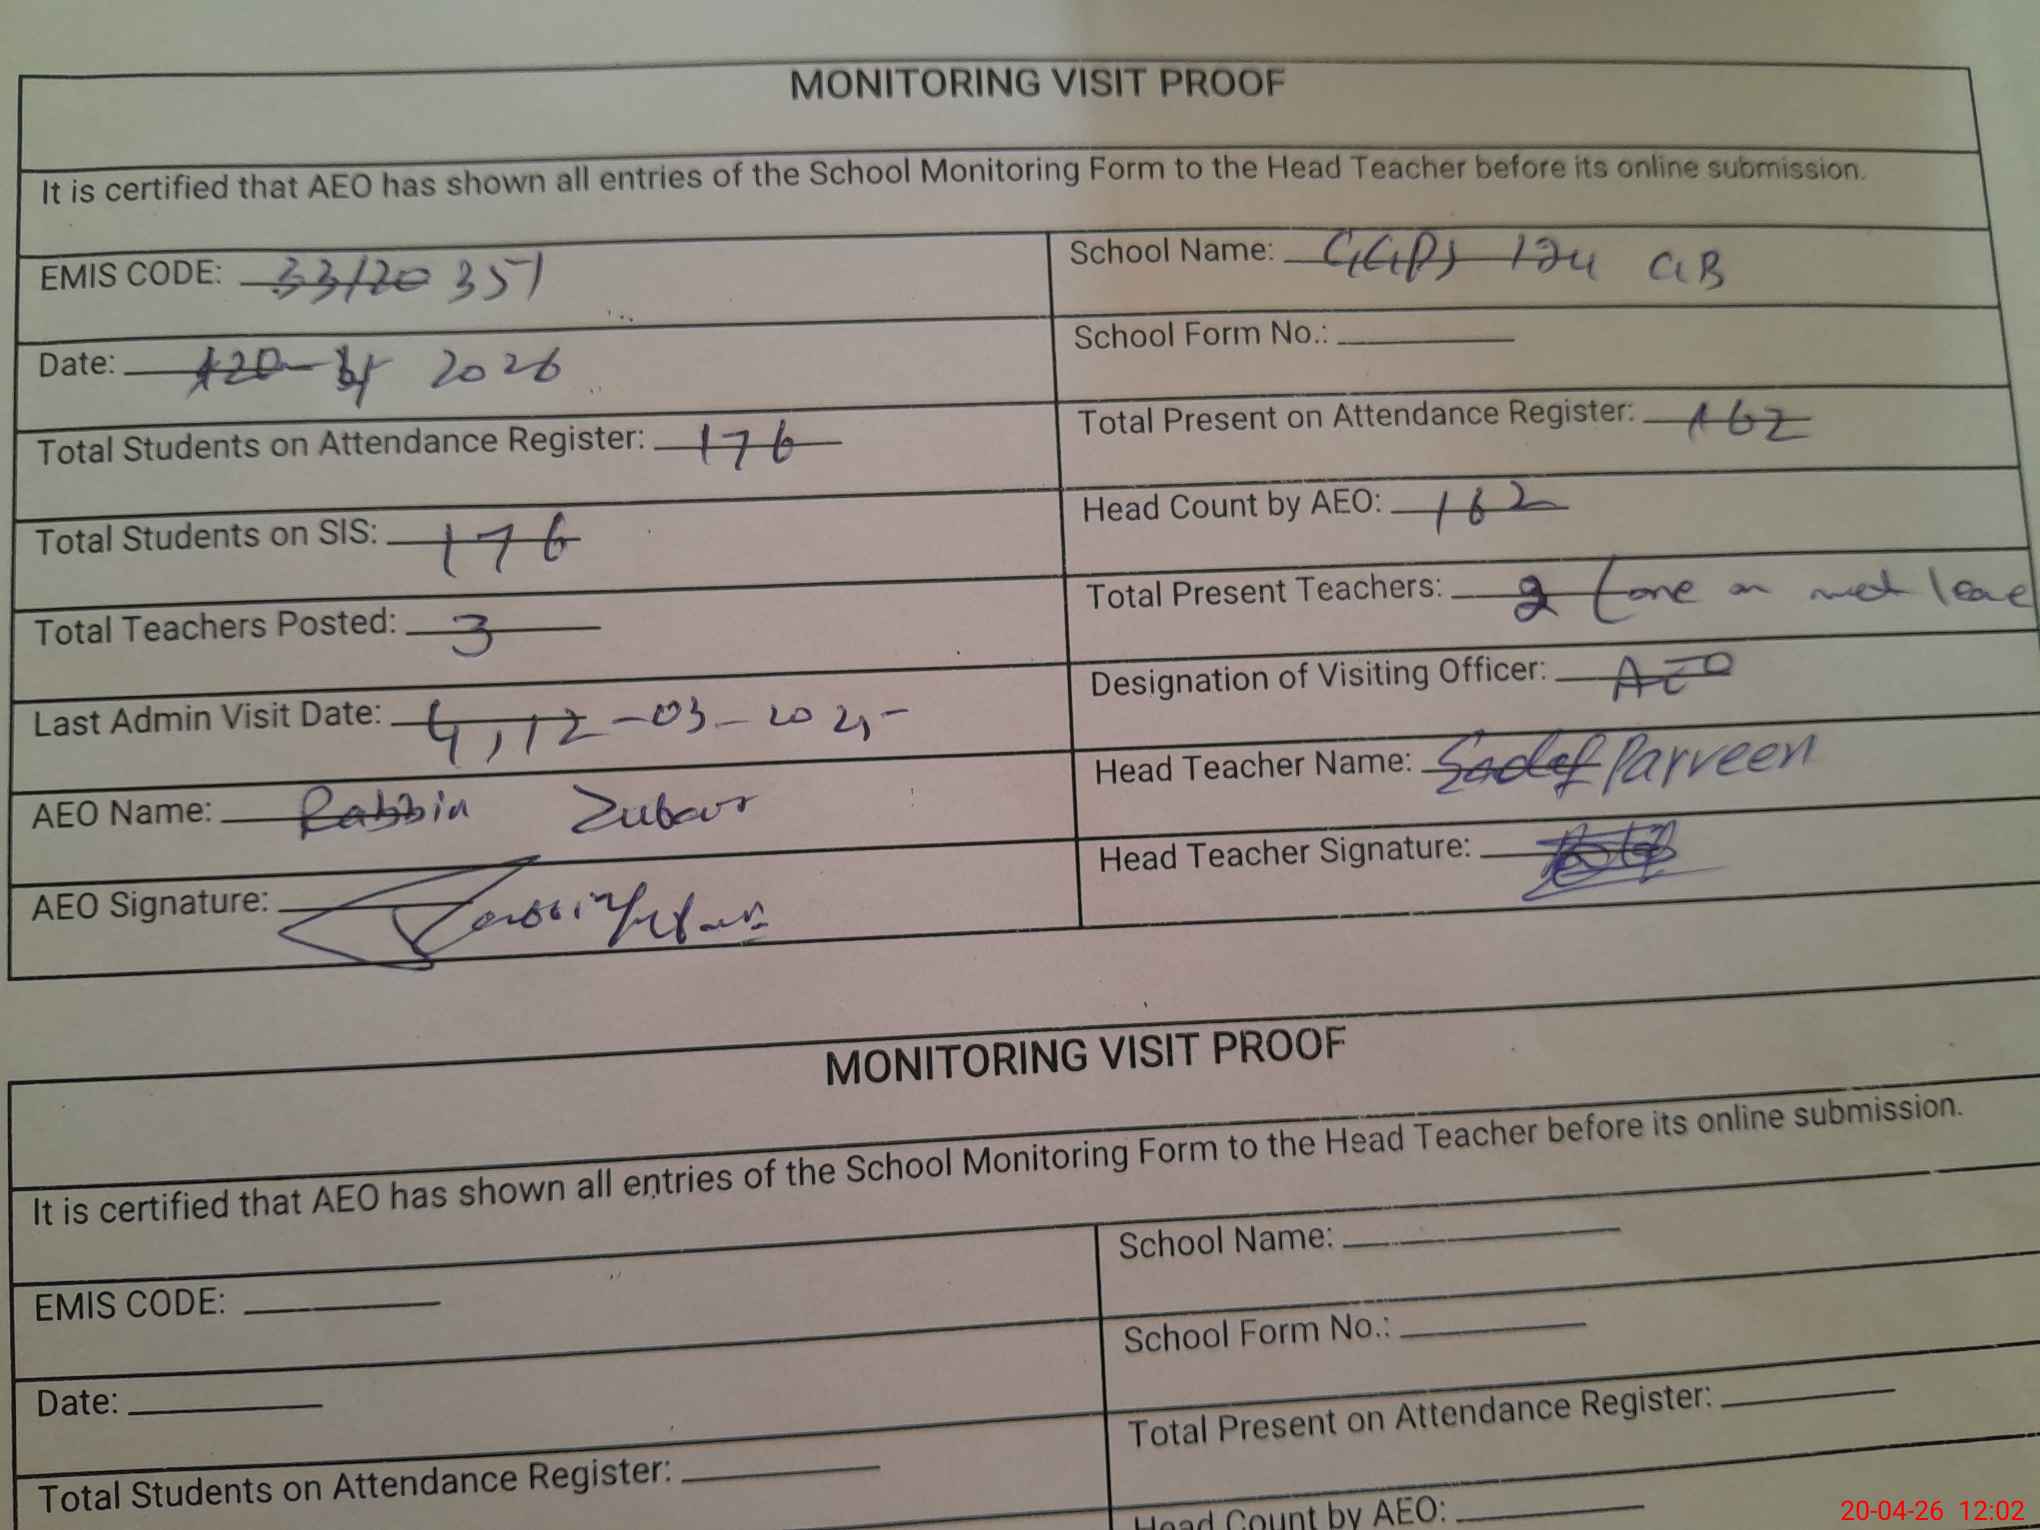 MONITORING VISIT PROOF
It is certified that AEO has shown all entries of the School Monitoring Form to the Head Teacher before its online submission.
EMIS CODE: 33120351
School Name: GGPS 124 GB
Date: 20-4 2026
School Form No.:
Total Students on Attendance Register: 176
Total Present on Attendance Register: 162
Total Students on SIS: 176
Head Count by AEO: 162
Total Teachers Posted: 3
Total Present Teachers: 2 (one on med leave
Last Admin Visit Date: 4, 12-03-202
Designation of Visiting Officer: AEO
AEO Name: Rabbia Zubair
Head Teacher Name: Sadaf Parveen
AEO Signature:
Head Teacher Signature:
MONITORING VISIT PROOF
It is certified that AEO has shown all entries of the School Monitoring Form to the Head Teacher before its online submission.
EMIS CODE:
School Name:
Date:
School Form No.:
Total Students on Attendance Register:
Total Present on Attendance Register:
Head Count by AEO:
20-04-26 12:02